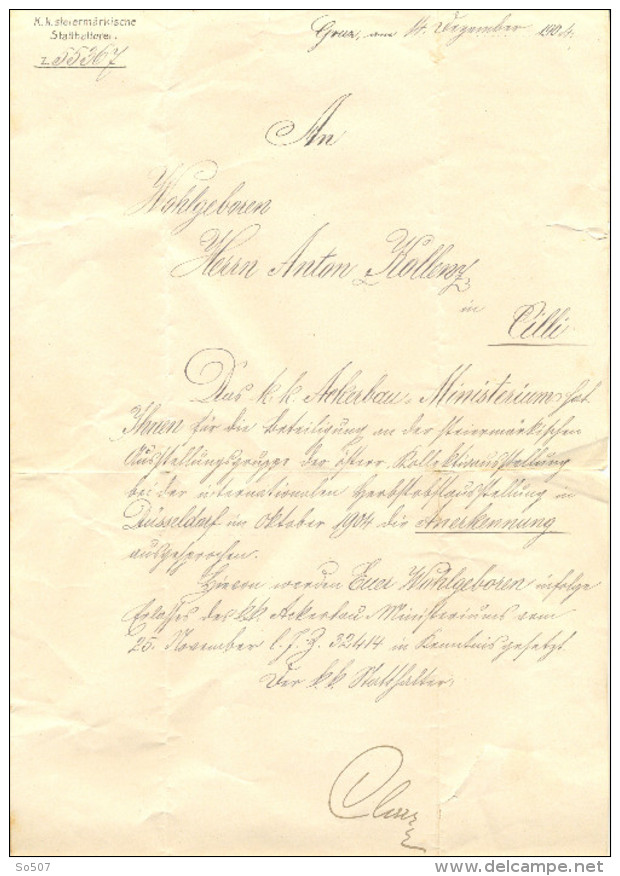 K. k. steiermärkische
Statthalterei.
Z. 55367
Graz, am 14. Dezember 1904.
An
Wohlgeboren
Herrn Anton Kollenz
in
Cilli
Das k. k. Ackerbau-Ministerium hat
Ihnen für die Beteiligung an der steiermärkischen
Ausstellungsgruppe der österr. Kollektivausstellung
bei der internationalen Herbstobstausstellung in
Düsseldorf im Oktober 1904 die Anerkennung
ausgesprochen.
Hievon werden Euer Wohlgeboren infolge
Erlasses des k.k. Ackerbau-Ministeriums vom
25. November l. J. Z. 32414 in Kenntnis gesetzt.
Der k.k. Statthalter:
So507
delcampe.net